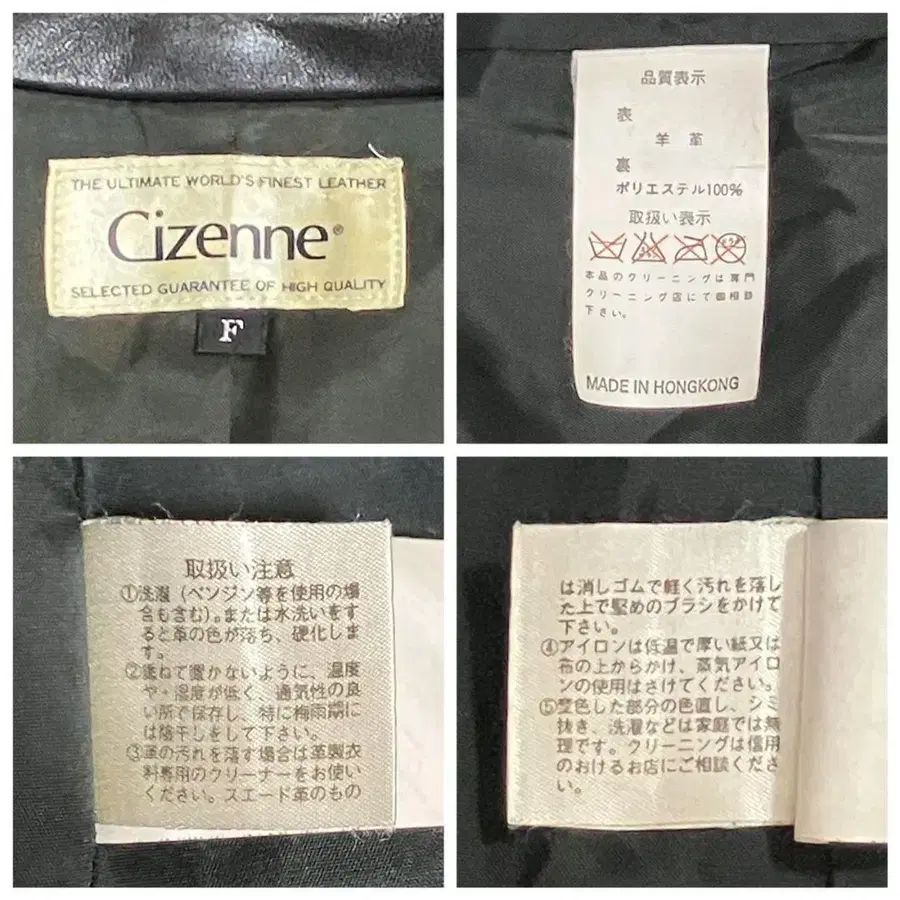 THE ULTIMATE WORLD'S FINEST LEATHER
Cizenne®
SELECTED GUARANTEE OF HIGH QUALITY
F
品質表示
表
羊革
裏
ポリエステル100%
取扱い表示
本品のクリーニングは専門
クリーニング店にて御相談
下さい。
MADE IN HONGKONG
取扱い注意
①洗濯(ベンジン等を使用の場
合も含む)。または水洗いをす
ると革の色が落ち、硬化しま
す。
②重ねて置かないように、温度
や・湿度が低く、通気性の良
い所で保存し、特に梅雨期に
は陰干しをして下さい。
③革の汚れを落す場合は革製衣
料専用のクリーナーをお使い
ください。スエード革のもの
は消しゴムで軽く汚れを落し
た上で堅めのブラシをかけて
下さい。
④アイロンは低温で厚い紙又は
布の上からかけ、蒸気アイロ
ンの使用はさけてください。
⑤変色した部分の色直し、シミ
抜き、洗濯などは家庭では無
理です。クリーニングは信用
のおけるお店にご相談くださ
い。